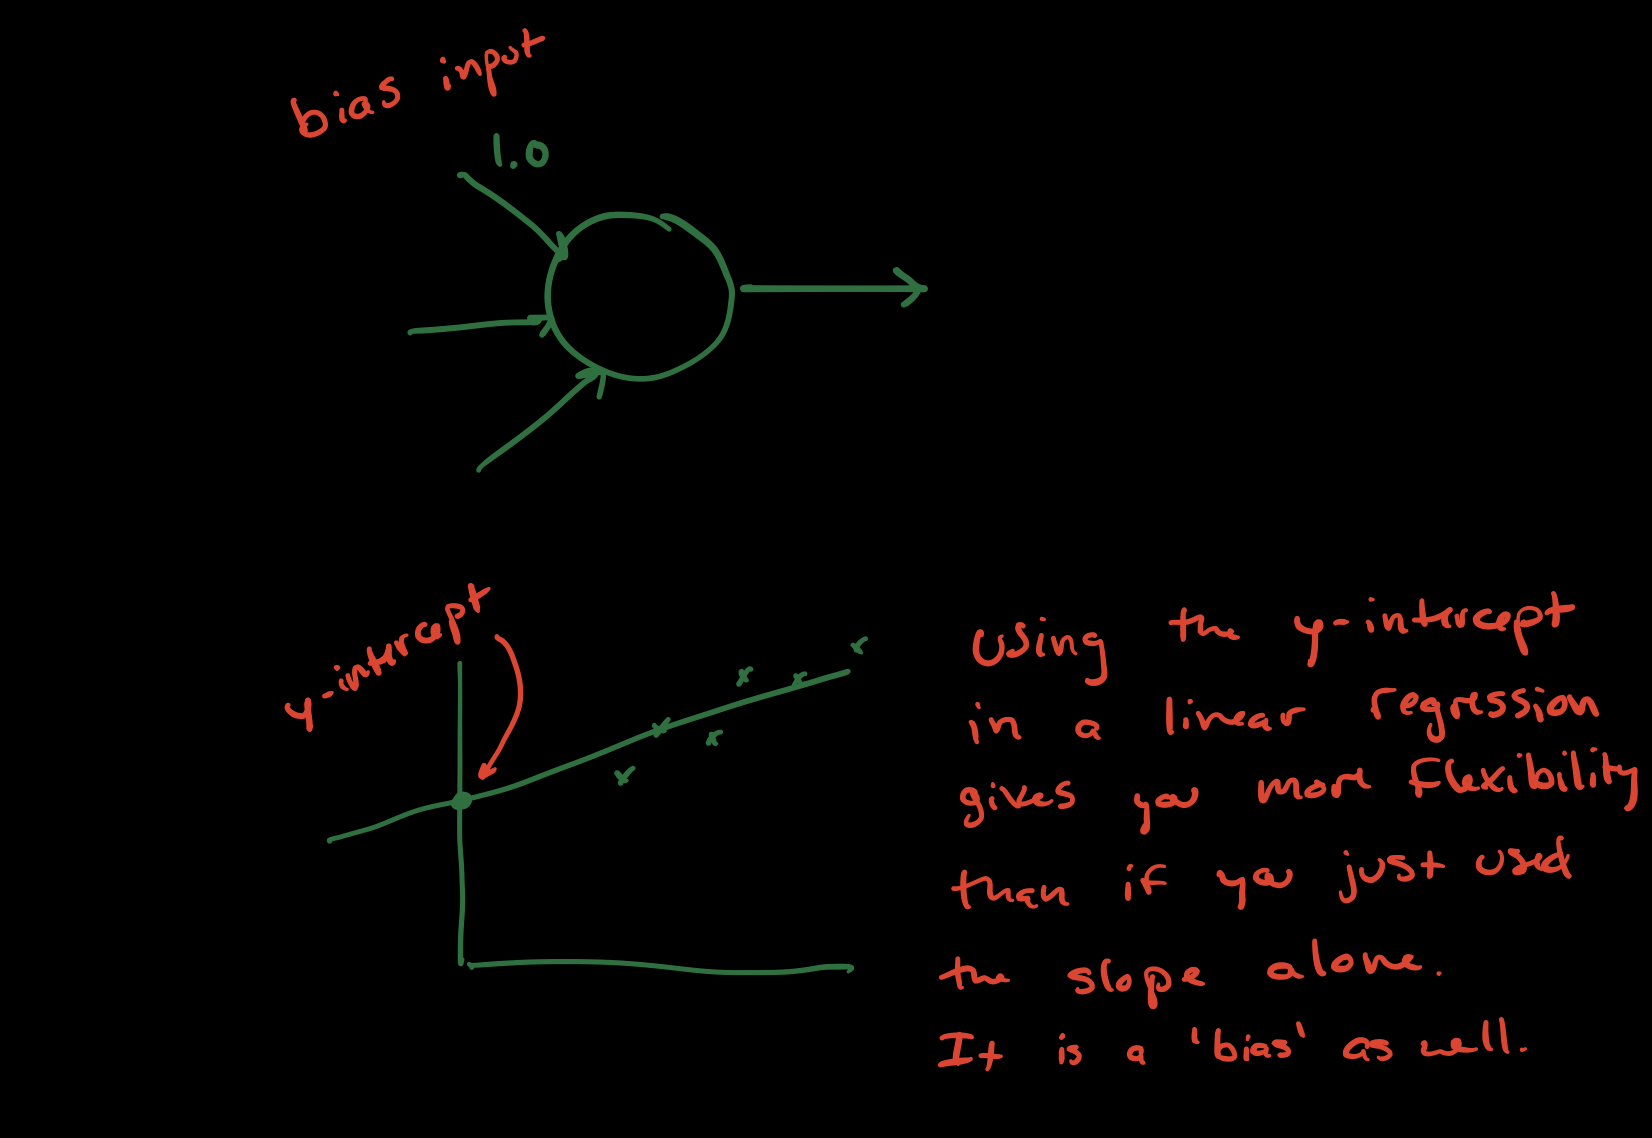 bias input
1.0
y-intercept
Using the y-intercept
in a linear regression
gives you more flexibility
than if you just used
the slope alone.
It is a 'bias' as well.